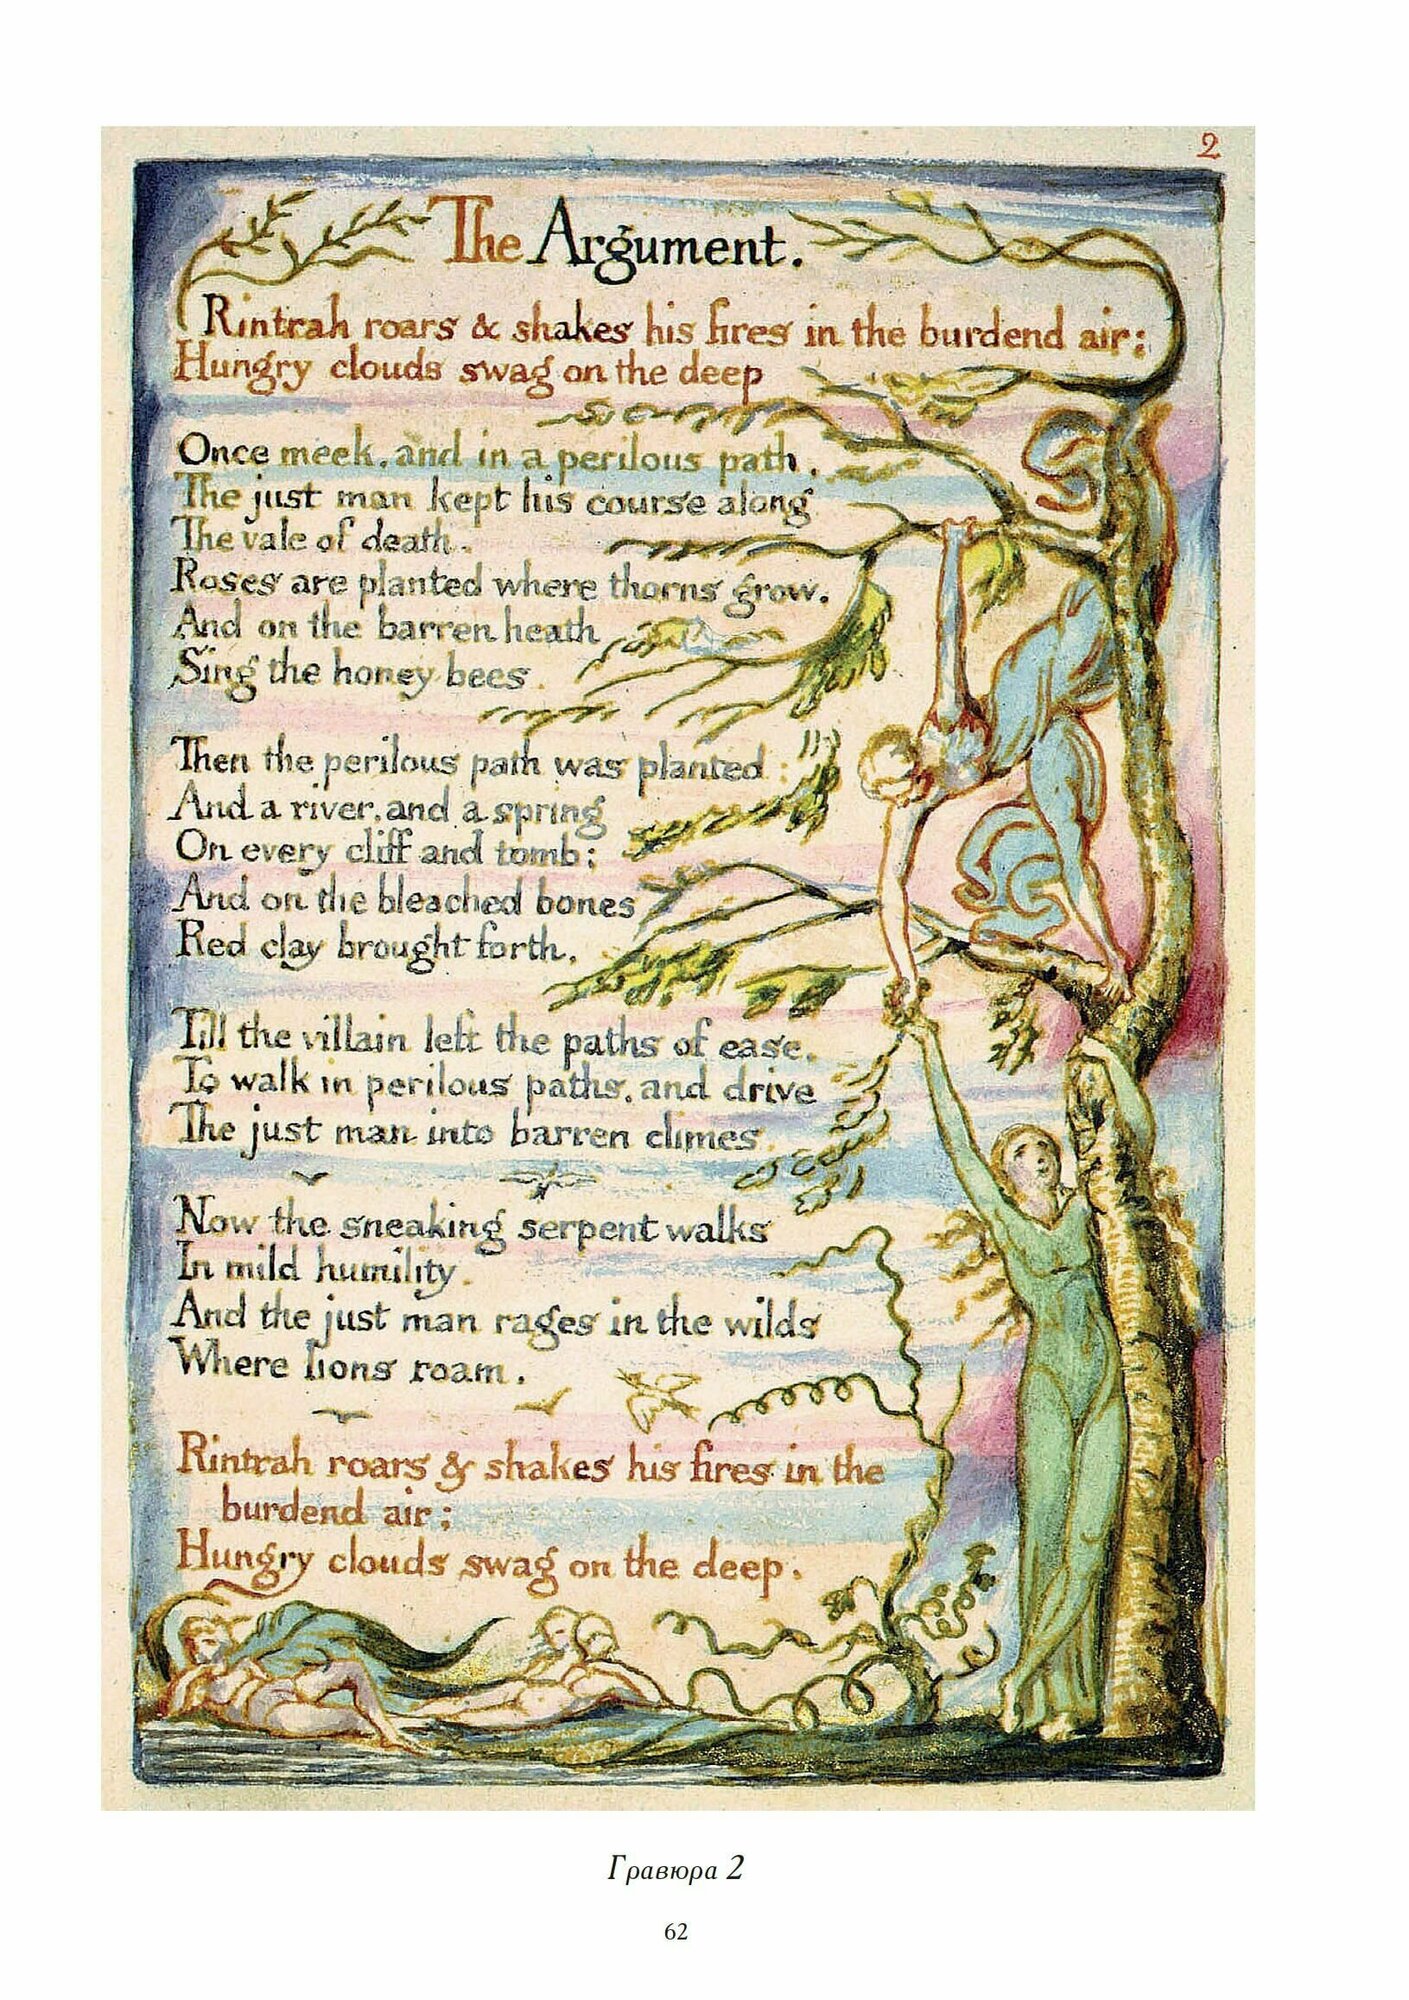 2
The Argument.
Rintrah roars & shakes his fires in the burdend air;
Hungry clouds swag on the deep
Once meek, and in a perilous path,
The just man kept his course along
The vale of death.
Roses are planted where thorns grow.
And on the barren heath
Sing the honey bees.
Then the perilous path was planted:
And a river, and a spring
On every cliff and tomb;
And on the bleached bones
Red clay brought forth.
Till the villain left the paths of ease,
To walk in perilous paths, and drive
The just man into barren climes.
Now the sneaking serpent walks
In mild humility.
And the just man rages in the wilds
Where lions roam.
Rintrah roars & shakes his fires in the
burdend air;
Hungry clouds swag on the deep.
Гравюра 2
62